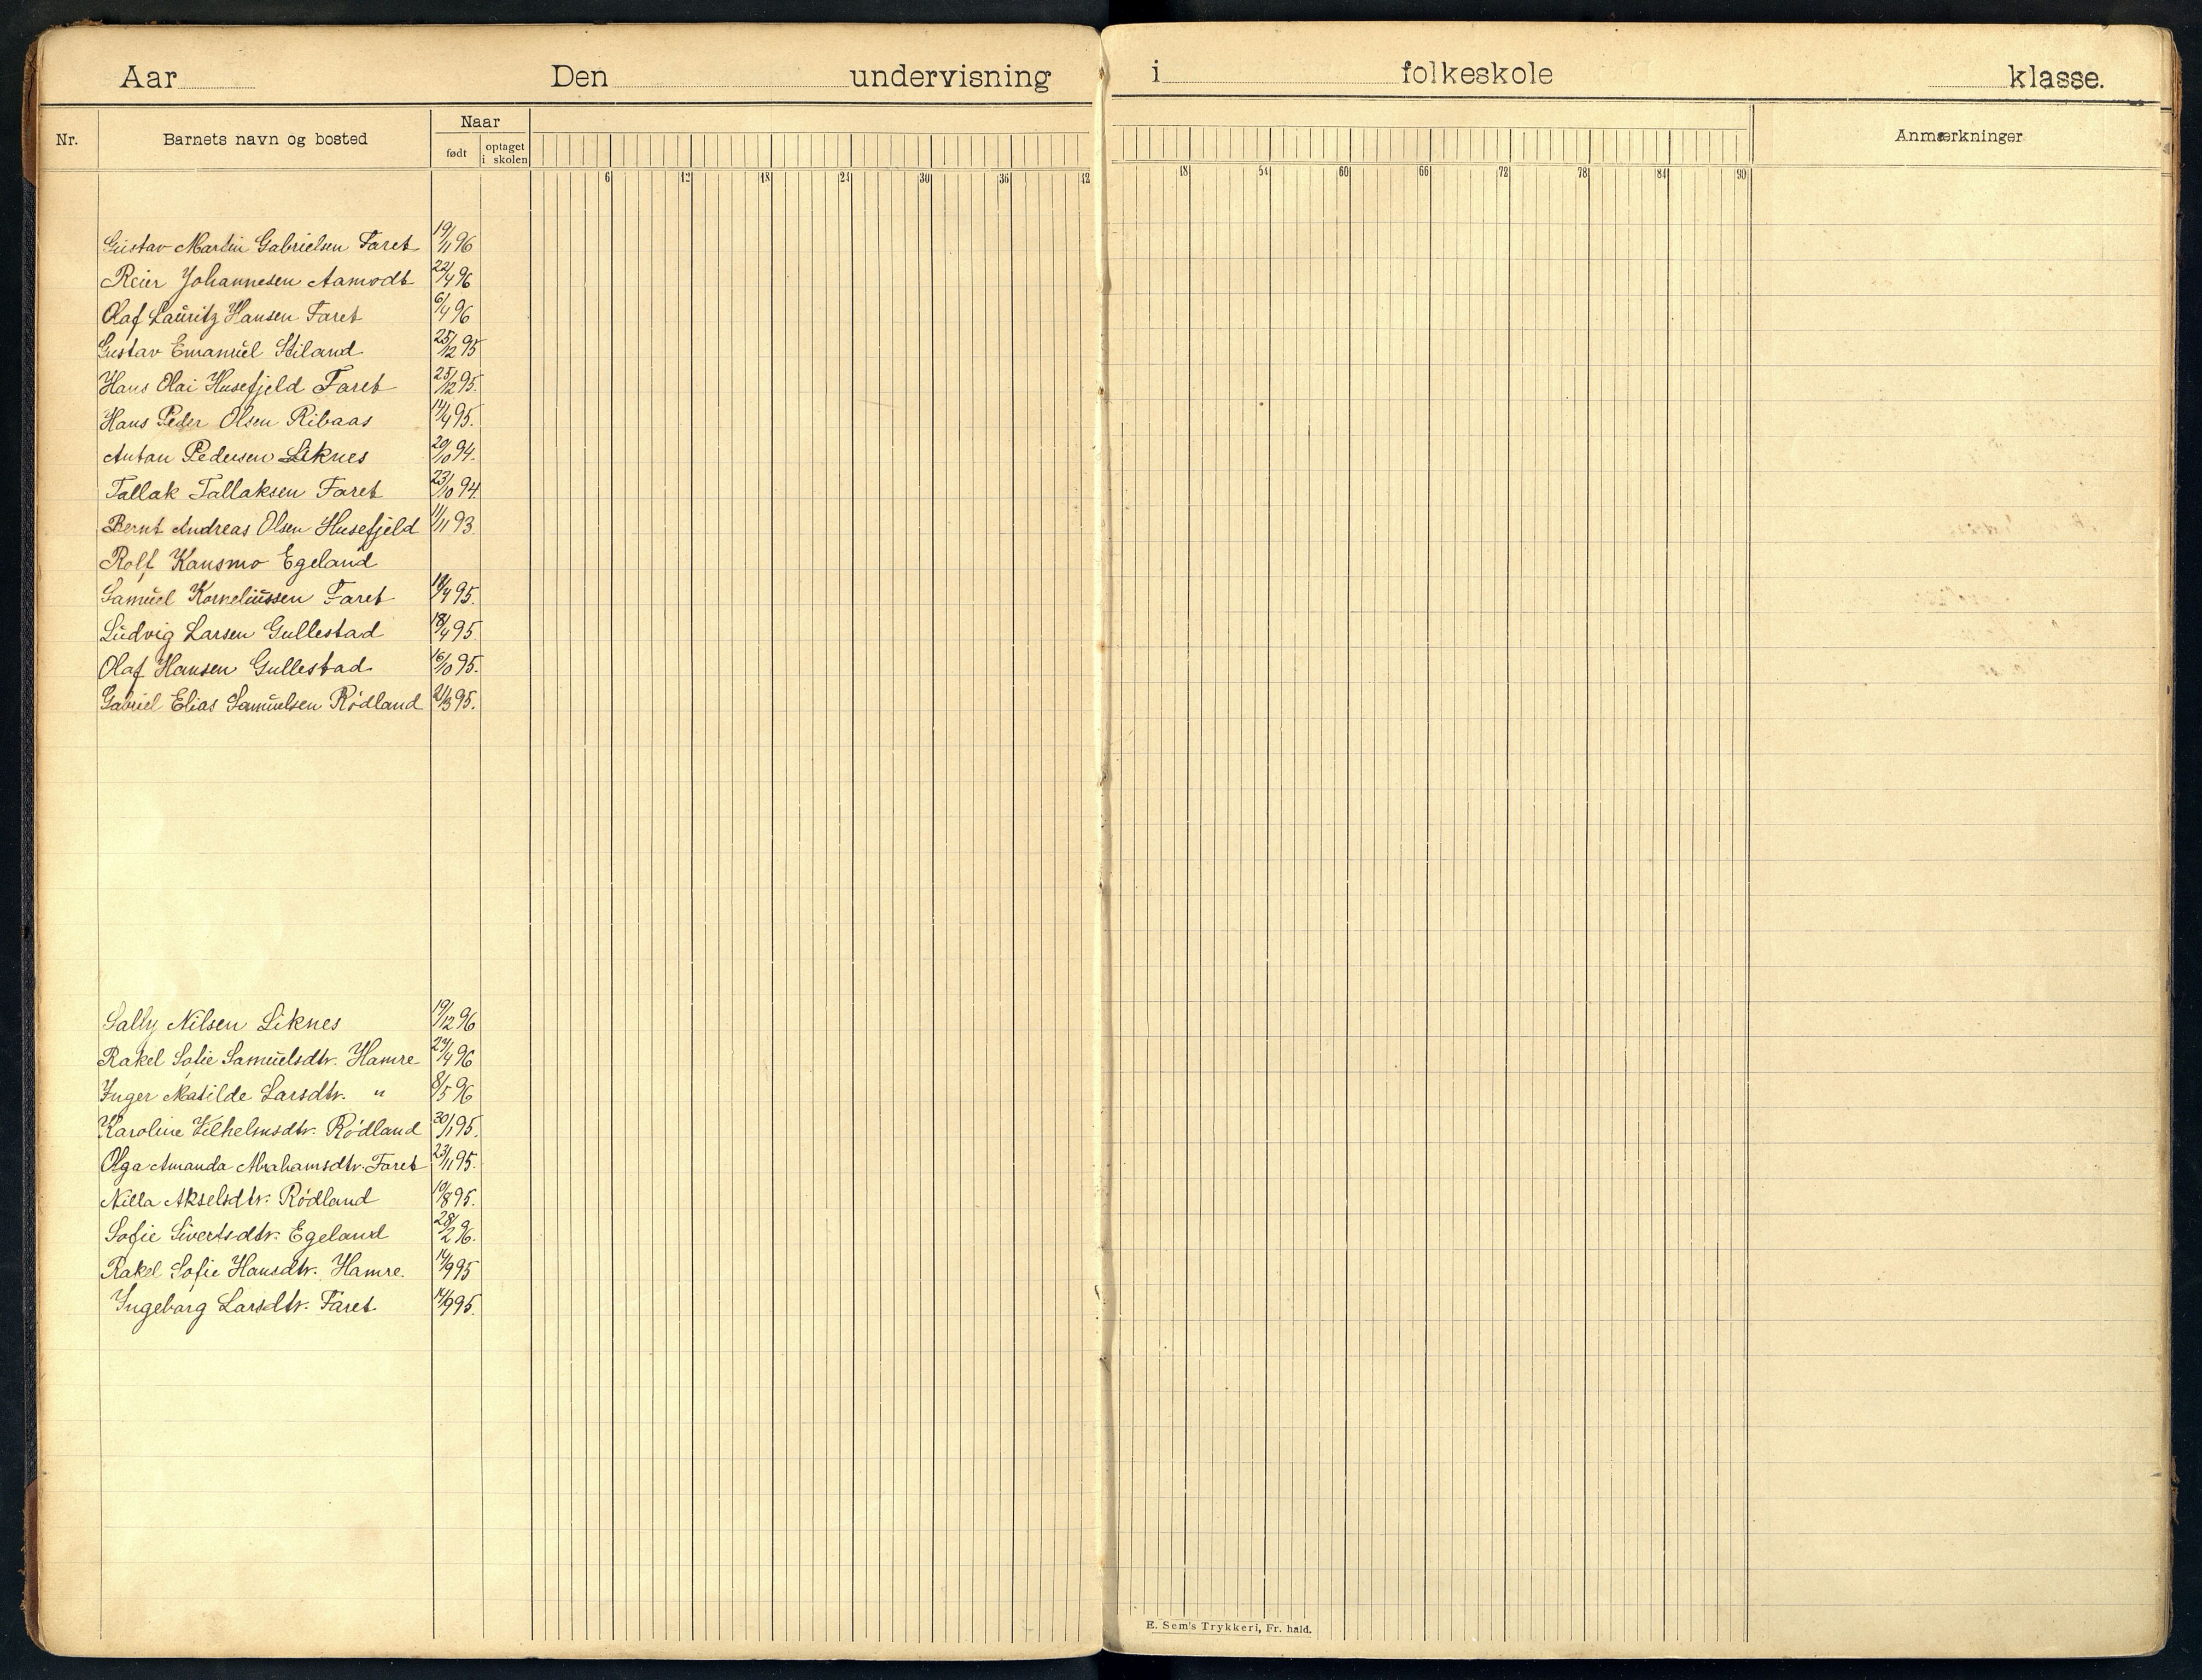 Aar Den undervisning i folkeskole klasse.
Nr. Barnets navn og bosted Naar født optaget i skolen Anmærkninger
6 12 18 24 30 36 42 48 54 60 66 72 78 84 90
Gustav Martin Gabrielsen Faret 19/11 96
Reier Johannesen Aamodt 22/4 96
Olaf Lauritz Hansen Faret 6/4 96
Gustav Emanuel Stiland 25/12 95
Hans Olai Husefjeld Faret 25/12 95.
Hans Peder Olsen Ribaas 14/4 95.
Antan Pedersen Liknes 20/10 94.
Tallak Tallaksen Faret 23/10 94.
Bernt Andreas Olsen Husefjeld 11/11 93
Rolf Kansmo Egeland
Samuel Korneliussen Faret 14/4 95.
Ludvig Larsen Gullestad 18/4 95.
Olaf Hansen Gullestad 16/10 95.
Gabriel Elias Samuelsen Rødland 21/3 95.
Sally Nilsen Liknes 19/12 96
Rakel Sofie Samuelsdtr. Hamre 24/4 96
Inger Matilde Larsdtr. " 8/5 96
Karoline Vilhelmsdtr. Rødland 30/1 95.
Olga Amanda Abrahamsdtr. Faret 23/11 95.
Nilla Akselsdtr. Rødland 10/8 95.
Sofie Sivertsdtr. Egeland 28/2 96.
Rakel Sofie Hansdtr. Hamre. 14/9 95
Ingeborg Larsdtr. Faret 14/9 95.
E. Sem's Trykkeri, Fr. hald.